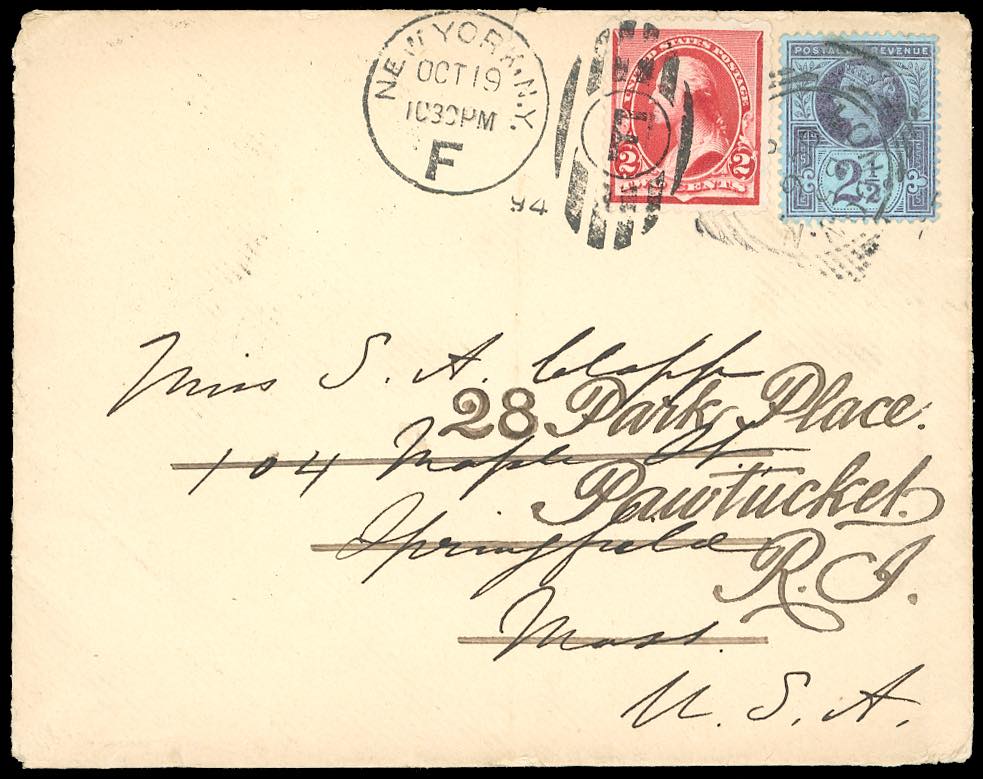 NEW YORK, N.Y.
OCT 19
10 30 PM
F
94
UNITED STATES POSTAGE
2 2
TWO CENTS
POSTAGE REVENUE
2½
Miss S. A. Clapp
28 Park Place.
104 Maple St
Pawtucket.
Springfield
R. I.
Mass.
U. S. A.